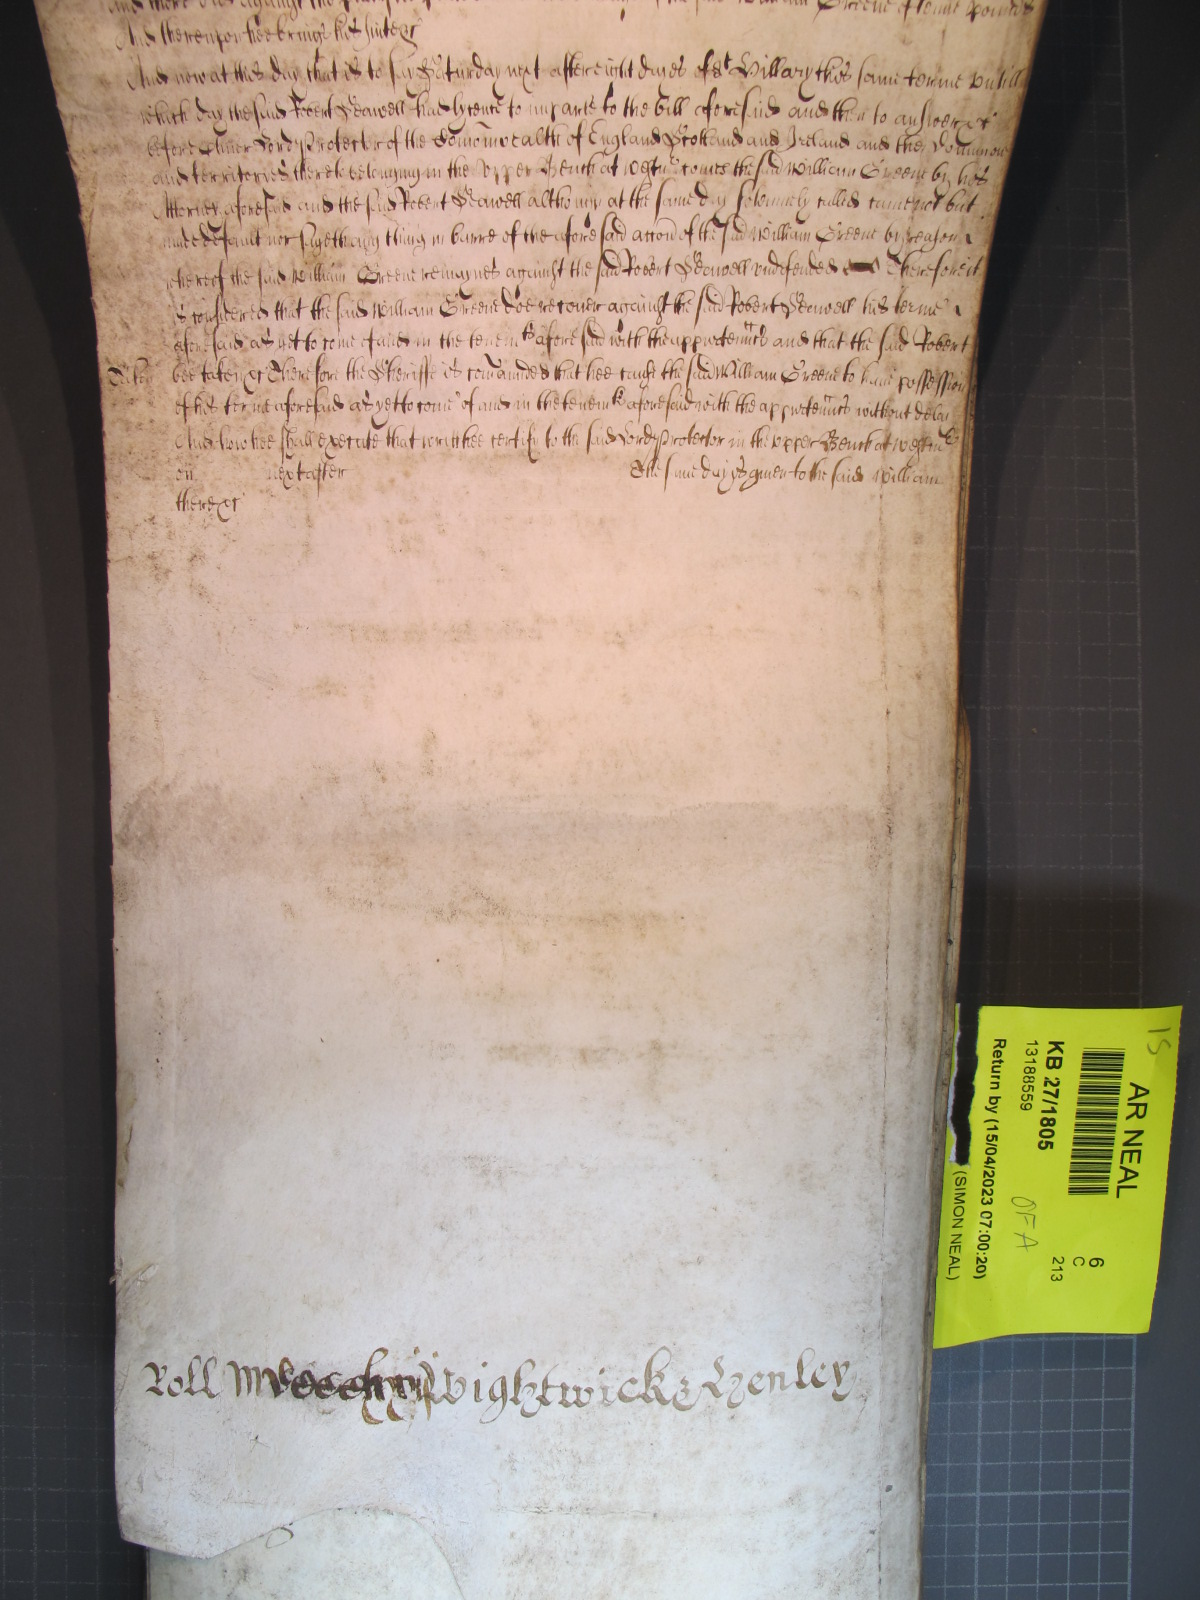 And thereupon hee brings his suite &c
And now at this day that is to say Saturday next after eight dayes of St Hillary this same terme untill
which day the said Robert Seawell had lycence to imparle to the bill aforesaid and then to answer &c
before Oliver Lord Protector of the Comonwealth of England Scotland and Ireland and the Dominions
and territories thereto belonging in the Upper Bench at Westmr comes the said William Greene by his
Attorney aforesaid and the said Robert Seawell although at the same day solemnely called came not but
made default nor sayeth any thing in barre of the aforesaid accon of the said William Greene by reason
whereof the said William Greene remaynes against the said Robert Seawell undefended Therefore it
is considered that the said William Greene doe recover against the said Robert Seawell his terme
aforesaid as yet to come of and in the tenemts aforesaid with the appurtenncs and that the said Robert
bee taken &c Therefore the Sheriffe is comaunded that hee cause the said William Greene to have possession
of his terme aforesaid as yet to come of and in the tenemts aforesaid with the appurtenncs without delay
And how hee shall execute that writt hee certify to the said Lord Protector in the upper Bench at Westmr
on next after The same day is given to the said William
there &c
Roll Wightwick & Henley
15
AR NEAL
6
C
213
KB 27/1805
13188559
OFA
Return by (15/04/2023 07:00:20)
(SIMON NEAL)